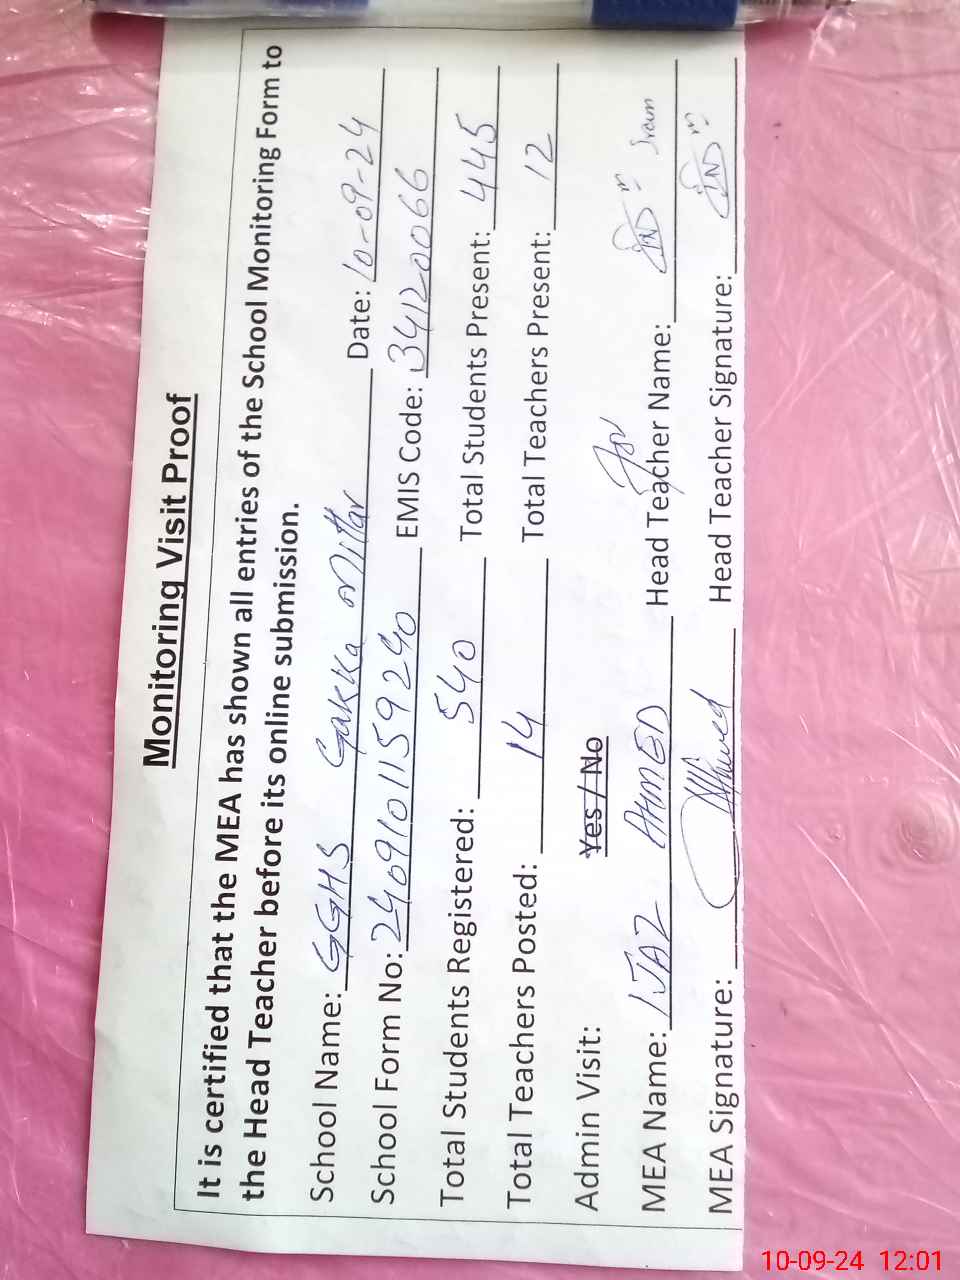 Monitoring Visit Proof
It is certified that the MEA has shown all entries of the School Monitoring Form to
the Head Teacher before its online submission.
School Name: GGHS Gakka Mitar Date: 10-09-24
School Form No: 2409101159240 EMIS Code: 34120066
Total Students Registered: 540 Total Students Present: 445
Total Teachers Posted: 14 Total Teachers Present: 12
Admin Visit: Yes / No
MEA Name: IJAZ AHMED Head Teacher Name:
MEA Signature: Ahmed Head Teacher Signature:
10-09-24 12:01